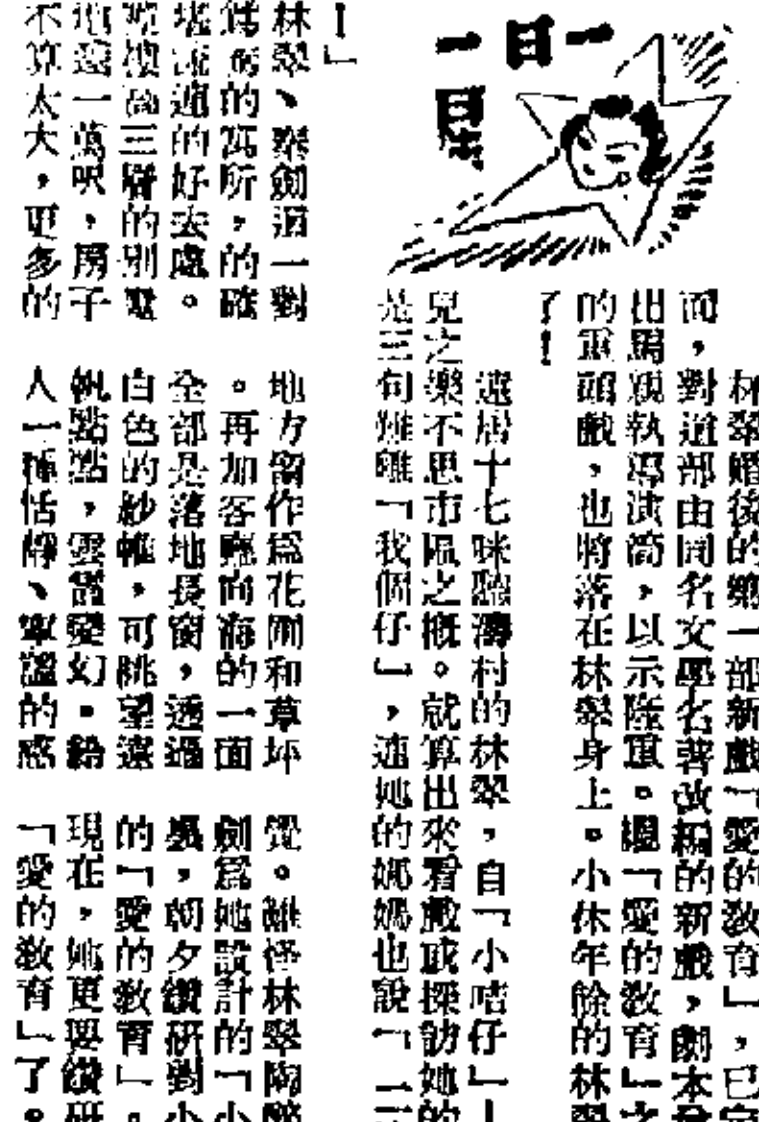 一日一
林翠婚後的第一部新戲「愛的教育」,已定
面,對這部由同名文學名著改編的新戲,劇本
出馬親執導演筒,以示隆重。繼「愛的教育」之
的重頭戲,也將落在林翠身上。小休年餘的林翠
了!
遠居十七咪臨濤村的林翠,自「小咭仔」
兒之樂不思市區之概。就算出來看戲或探訪她的
是三句離「我個仔」,連她的媽媽也說「
!」
林翠、秦劍這一對
的寓所,的確
堪流連的好去處。
樓高三層的別墅
地達一萬呎,房子
不算太大,更多的
地方留作為花圃和草坪
。再加客廳向海的一面
全部是落地長窗,透過
白色的紗帷,可眺望遠
帆點點,雲霞變幻。給
人一種恬靜、寧謐的感
覺。難怪林翠陶醉
劍為她設計的「小
巢,朝夕鑽研對小
的「愛的教育」。
現在,她更要鑽研
「愛的教育」了。